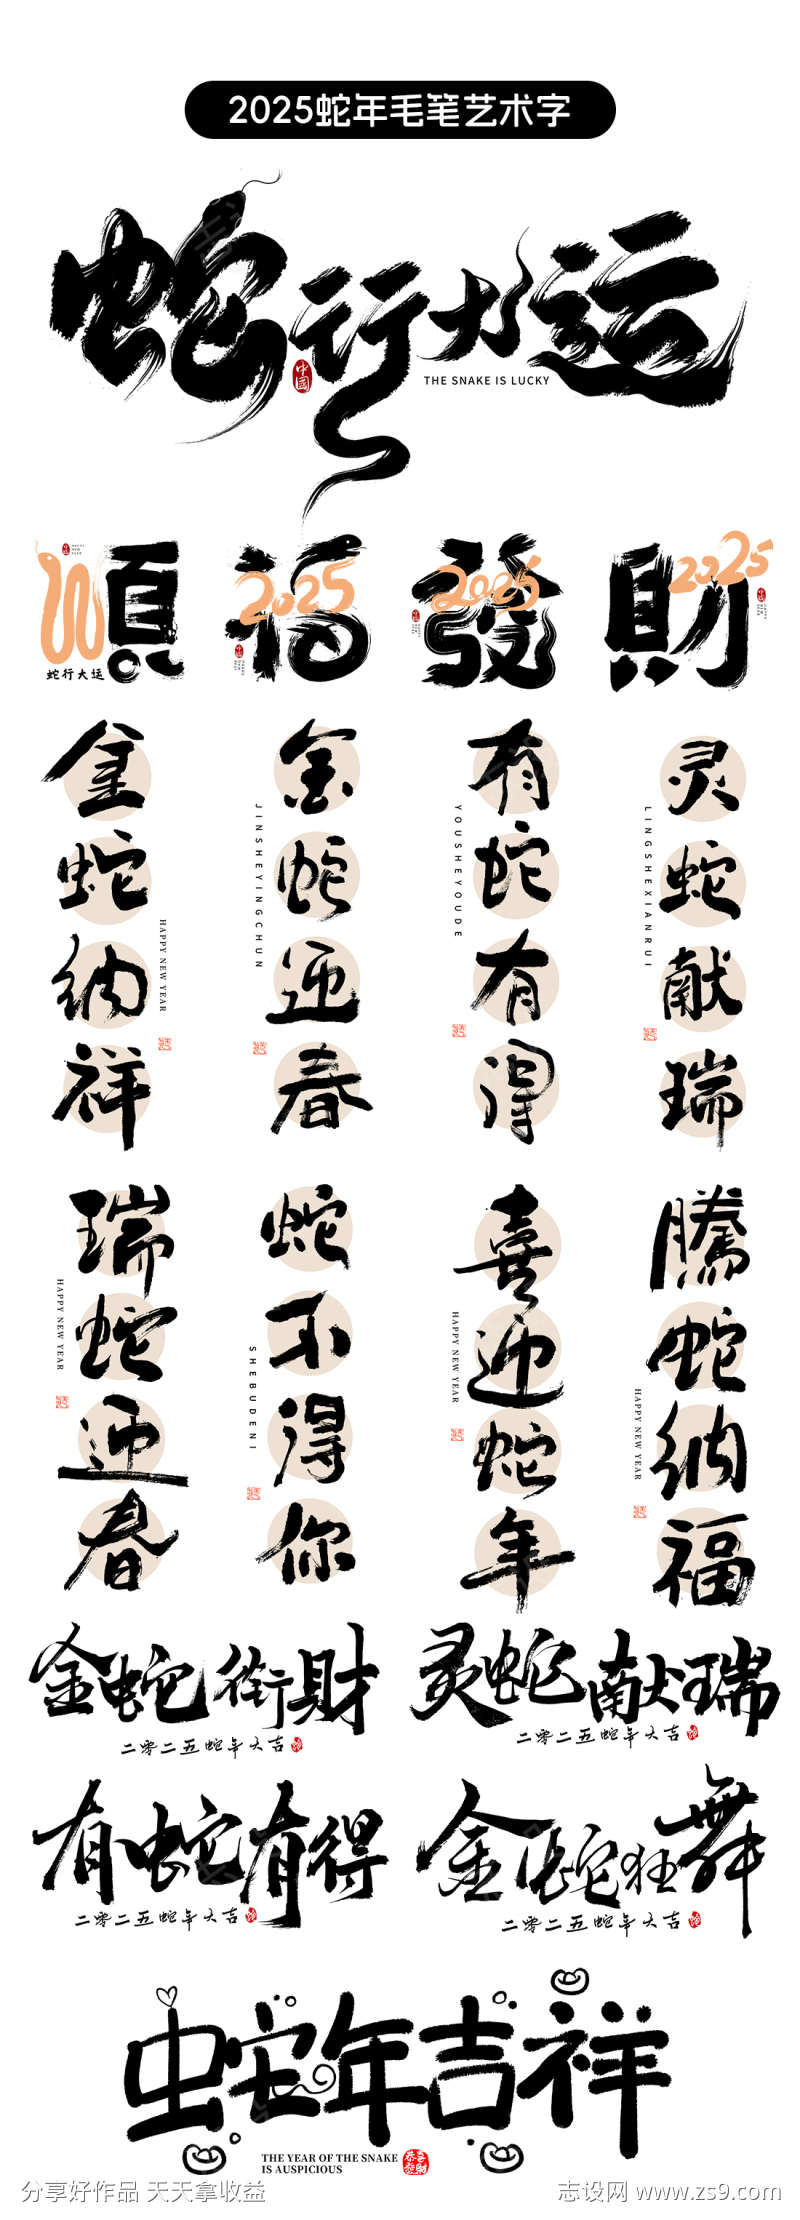 2025蛇年毛笔艺术字
蛇行大运
中国
THE SNAKE IS LUCKY
順
蛇行大运
福
2025
發
2025
財
2025
金蛇纳祥
HAPPY NEW YEAR
金蛇迎春
JINSHEYINGCHUN
有蛇有得
YOUSHEYOUDE
灵蛇献瑞
LINGSHEXIANRUI
瑞蛇迎春
HAPPY NEW YEAR
蛇不得你
SHEBUDENI
喜迎蛇年
HAPPY NEW YEAR
騰蛇纳福
HAPPY NEW YEAR
金蛇衔財
二零二五蛇年大吉
灵蛇献瑞
二零二五蛇年大吉
有蛇有得
二零二五蛇年大吉
金蛇狂舞
二零二五蛇年大吉
蛇年吉祥
THE YEAR OF THE SNAKE
IS AUSPICIOUS
分享好作品 天天拿收益
志设网 www.zs9.com